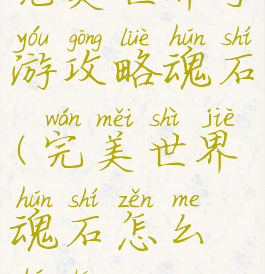 yóu gōng lüè hún shí
游攻略魂石
wán měi shì jiè
(完美世界
hún shí zěn me
魂石怎么